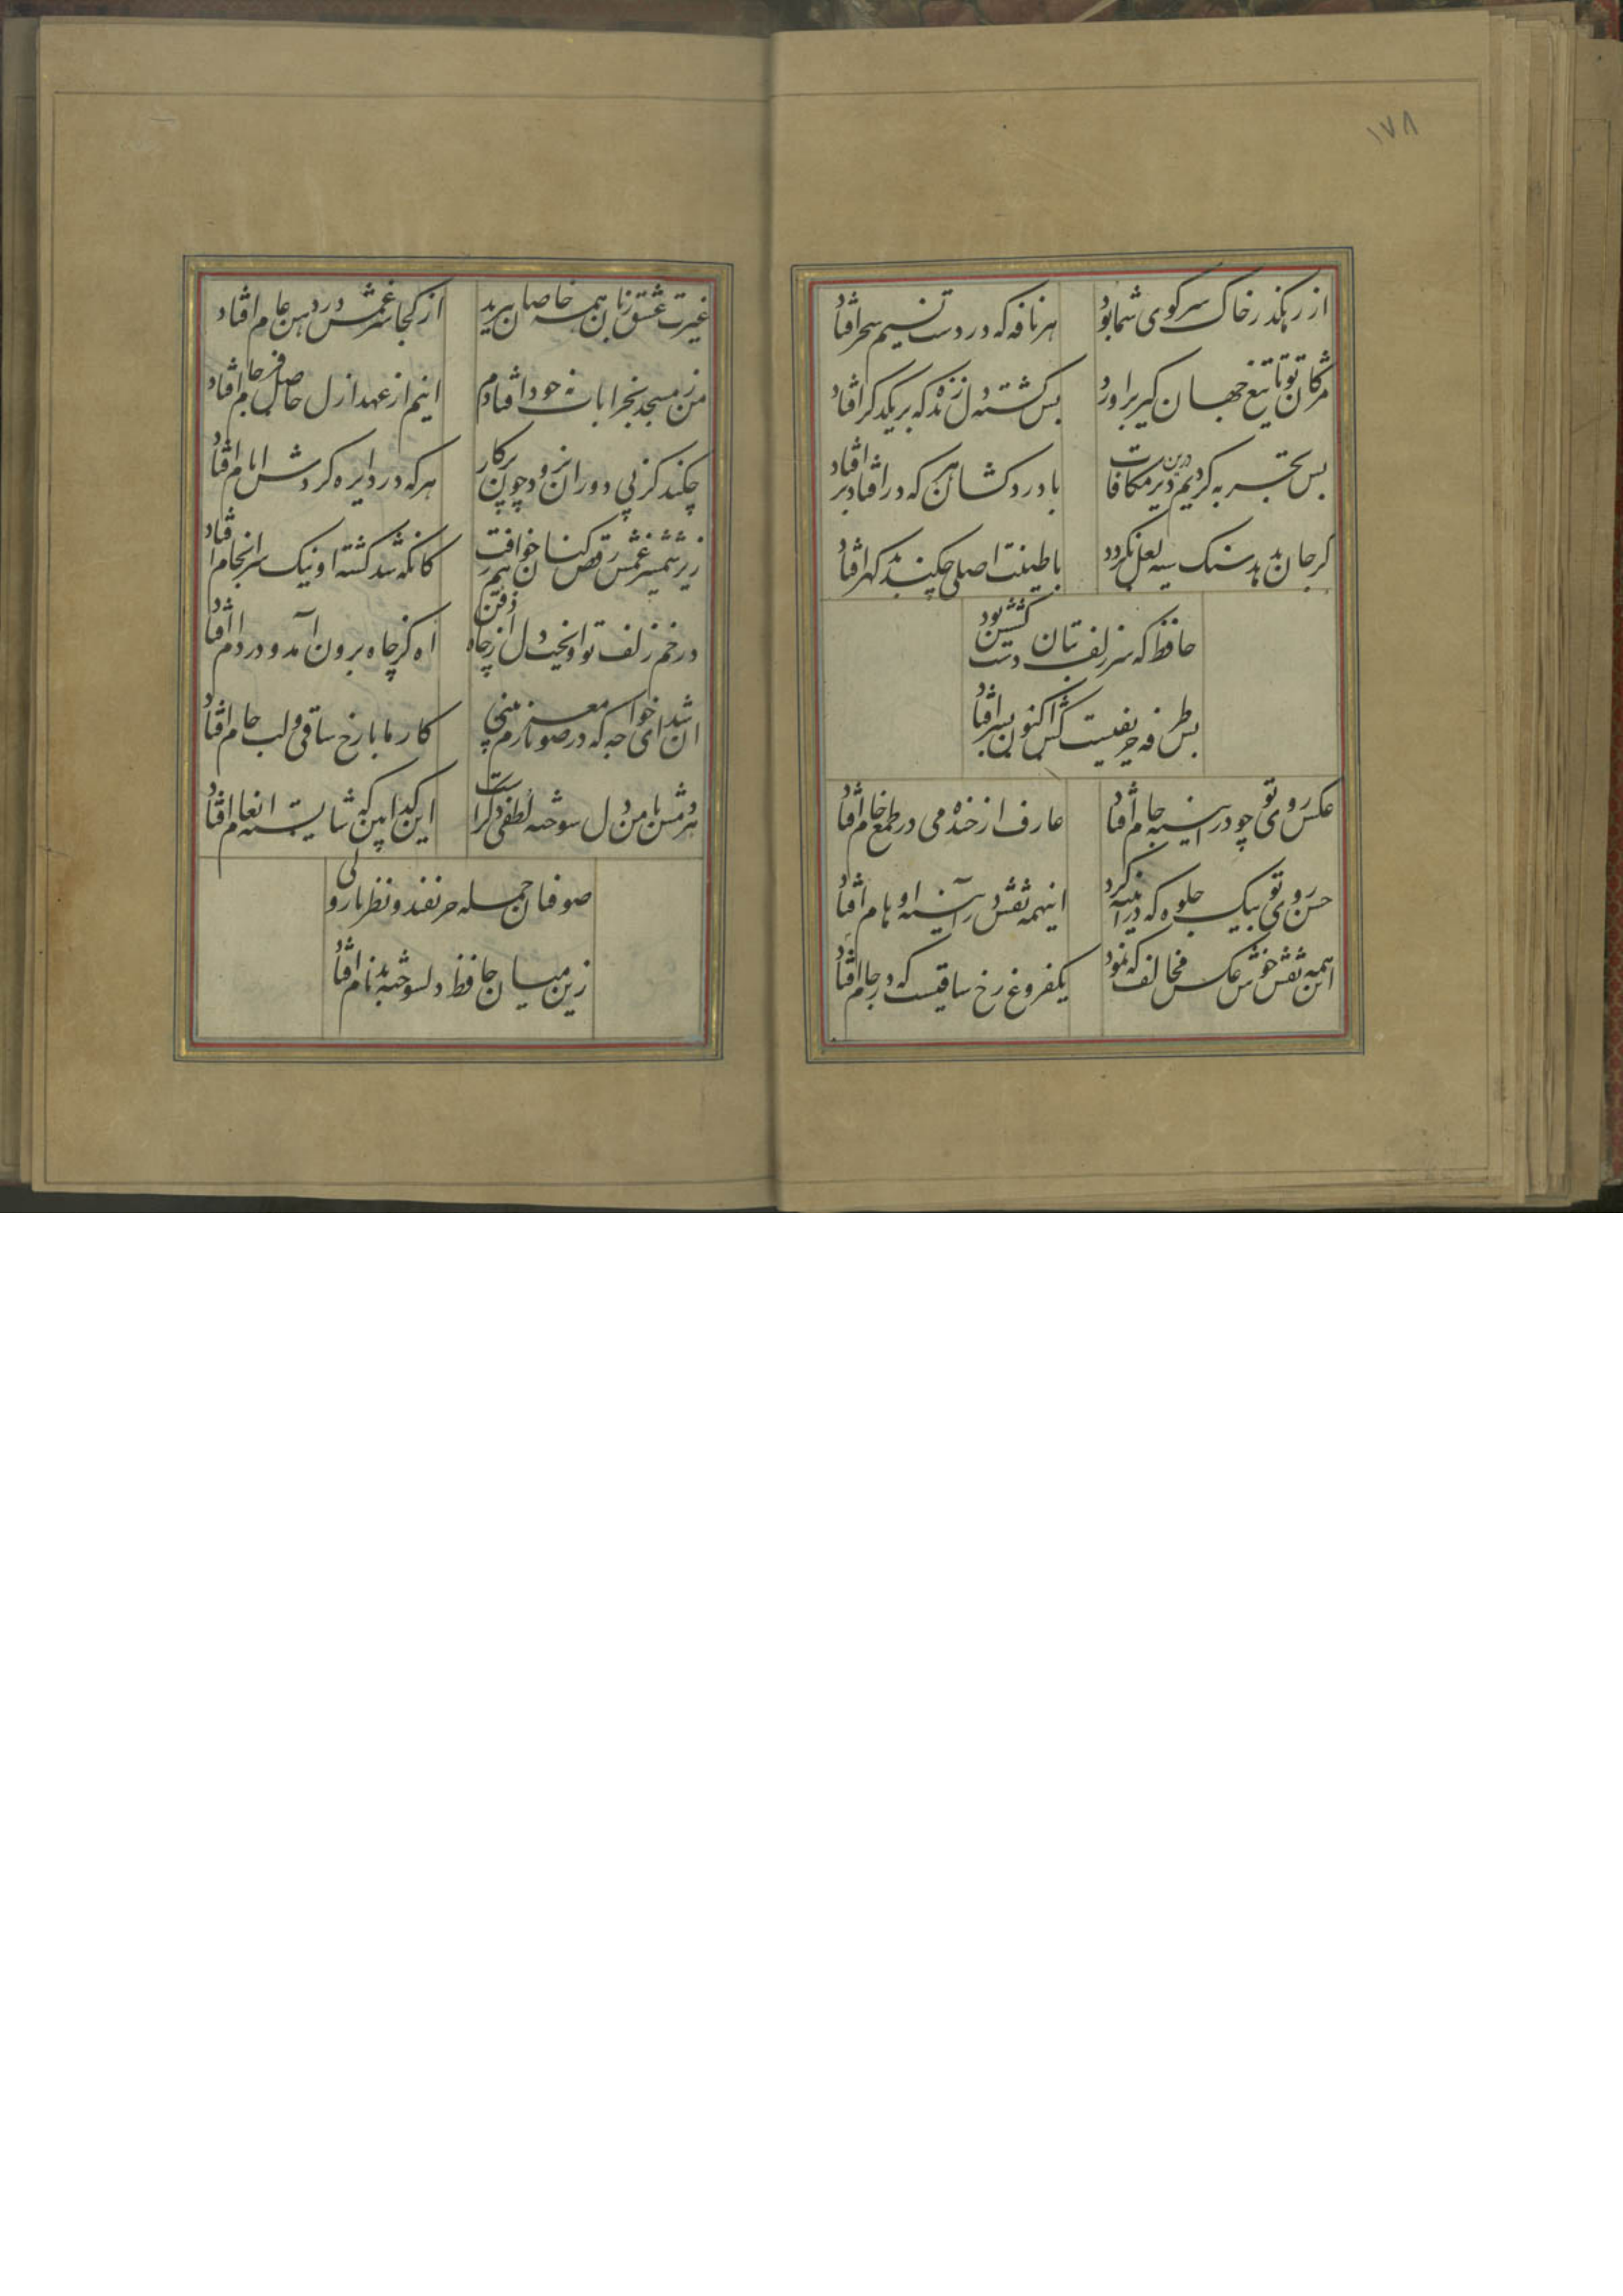 ۱۷۸
از رهکذر خاک سر کوی شما بود هر نافه که در دست نسیم سحر افتاد
مژکان تو تا تیغ جهان کیر براورد بس کشته دل زنده که بر یکدکر افتاد
بس تجربه کردیم درین دیر مکافات با درد کشان هر که در افتاد بر افتاد
کر جان بدهد سنک سیه لعل نکردد با طینت اصلی چکند بد کهر افتاد
حافظ که سر زلف بتان دست کشش بود
بس طرفه حریفیست کش اکنون بسر افتاد
عکس روی تو چو در اینه جام افتاد عارف از خنده می در طمع خام افتاد
حسن روی تو بیک جلوه که در اینه کرد اینهمه نقش در آینه اوهام افتاد
این همه نقش خوش عکس مخالف که نمود یکفروغ رخ ساقیست که در جام افتاد
غیرت عشق زبان همه خاصان ببرید از کجا سر غمش در دهن عام افتاد
من ز مسجد بخرابات نه خود افتادم اینم از عهد ازل حاصل فرجام افتاد
چکند کز پی دوران نرود چون پرکار هر که در دایره کردش ایام افتاد
زیر شمشیر غمش رقص کنان خواهم رفت کانکه شد کشته او نیک سرانجام افتاد
در خم زلف تو اویخت دل از چاه ذقن اه کز چاه برون آمد و در دام افتاد
ان شد ای خواجه که در صومعه بازم بینی کار ما با رخ ساقی و لب جام افتاد
هر دمش با من دل سوخته لطفی دکر است این کدا بین که شایسته انعام افتاد
صوفیان جمله حریفند و نظرباز ولی
زین میان حافظ دلسوخته بدنام افتاد